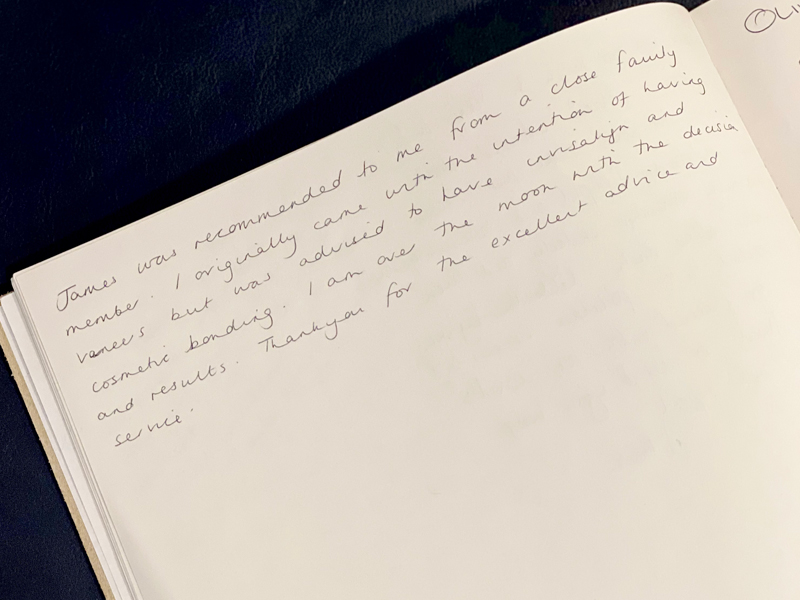 James was recommended to me from a close family
member. I originally came with the intention of having
veneers but was advised to have invisalign and
cosmetic bonding. I am over the moon with the decision
and results. Thankyou for the excellent advice and
service.